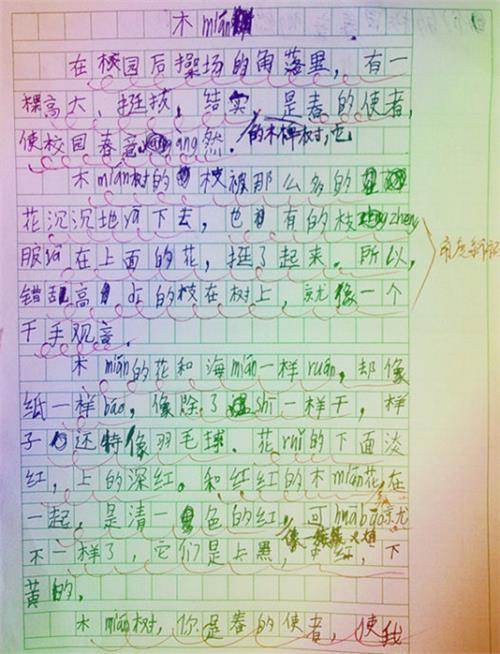 木mián
在校园后操场的角落里，有一
棵高大、挺拔、结实，是春的使者，
使校园春意 àng然．的木棉树，它
木mián树的枝被那么多的
花沉沉地yā下去，也有的枝 zhēng
服yā在上面的花，挺了起来．所以，
错乱高 的枝在树上，就像一个
千手观音．
木mián的花和海mián一样ruǎn，却像
纸一样báo，像除了 shī一样干，样
子还特像羽毛球．花ruǐ的下面淡
红，上的深红。和红红的木mián花，在
一起，是清一色的红，可huābāo就尤
像一簇簇火焰
不一样了，它们是上黑，中红，下
黄的．
木mián树，你是春的使者，使我